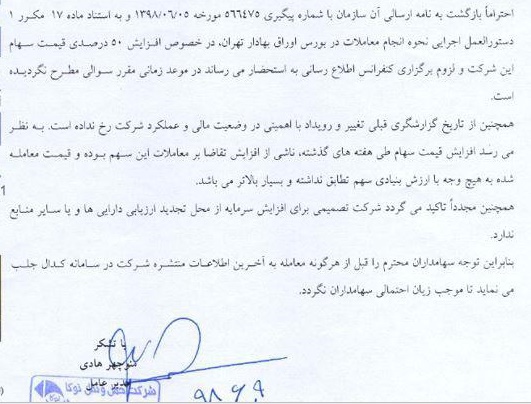 احتراماً بازگشت به نامه ارسالی آن سازمان با شماره پیگیری ۵۶۶۴۷۵ مورخه ۱۳۹۸/۰۶/۰۵ و به استناد ماده ۱۷ مکرر ۱
دستورالعمل اجرایی نحوه انجام معاملات در بورس اوراق بهادار تهران، در خصوص افزایش ۵۰ درصدی قیمت سهام
این شرکت و لزوم برگزاری کنفرانس اطلاع رسانی به استحضار می رساند در موعد زمانی مقرر سوالی مطرح نگردیده
است.
همچنین از تاریخ گزارشگری قبلی تغییر و رویداد با اهمیتی در وضعیت مالی و عملکرد شرکت رخ نداده است. به نظر
می رسد افزایش قیمت سهام طی هفته های گذشته، ناشی از افزایش تقاضا بر معاملات این سهم بوده و قیمت معامله
شده به هیچ وجه با ارزش بنیادی سهم تطابق نداشته و بسیار بالاتر می باشد.
همچنین مجدداً تاکید می گردد شرکت تصمیمی برای افزایش سرمایه از محل تجدید ارزیابی دارایی ها و یا سایر منابع
ندارد.
بنابراین توجه سهامداران محترم را قبل از هرگونه معامله به آخرین اطلاعات منتشره شرکت در سامانه کدال جلب
می نماید تا موجب زیان احتمالی سهامداران نگردد.
با تشکر
منوچهر هادی
مدیر عامل
شرکت حمل و نقل توکا
۹۸ ۶ ۹